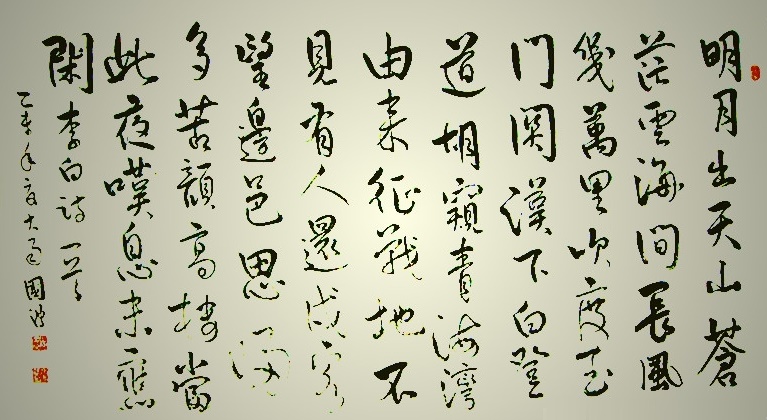 明月出天山蒼
茫雲海間長風
幾萬里吹度玉
門関漢下白登
道胡窺青海灣
由来征戰地不
見有人還戍客
望邊邑思歸
多苦顔高樓當
此夜嘆息未應
閑李白詩一首
乙未年夏大